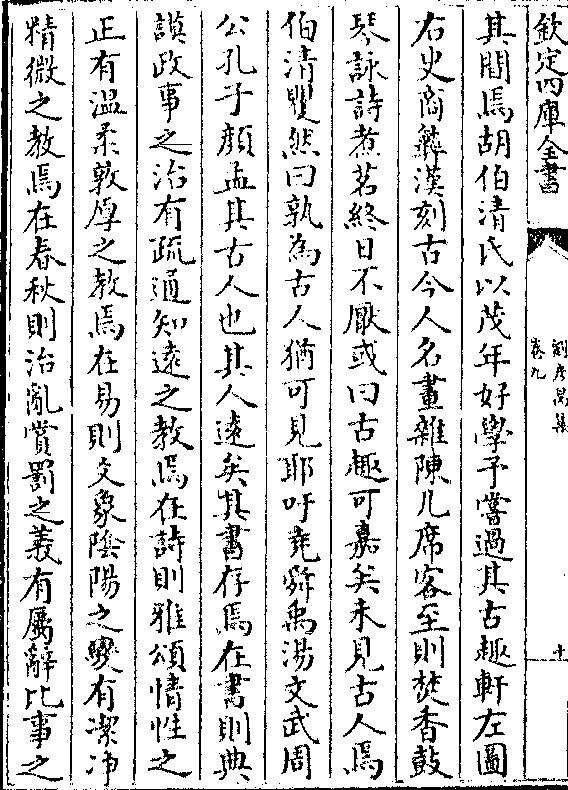 欽定四庫全書
劉彥昺集
卷九
十
其間焉胡伯清氏以茂年好學予嘗過其古趣軒左圖
右史商彝漢刻古今人名畫雜陳几席客至則焚香鼓
琴詠詩煮茗終日不厭或曰古趣可嘉矣未見古人焉
伯清矍然曰孰為古人猶可見耶吁堯舜禹湯文武周
公孔子顏孟其古人也其人逺矣其書存焉在書則典
謨政事之治有疏通知逺之教焉在詩則雅頌情性之
正有温柔敦厚之教焉在易則文象陰陽之變有潔净
精微之教焉在春秋則治亂賞罰之義有屬辭比事之